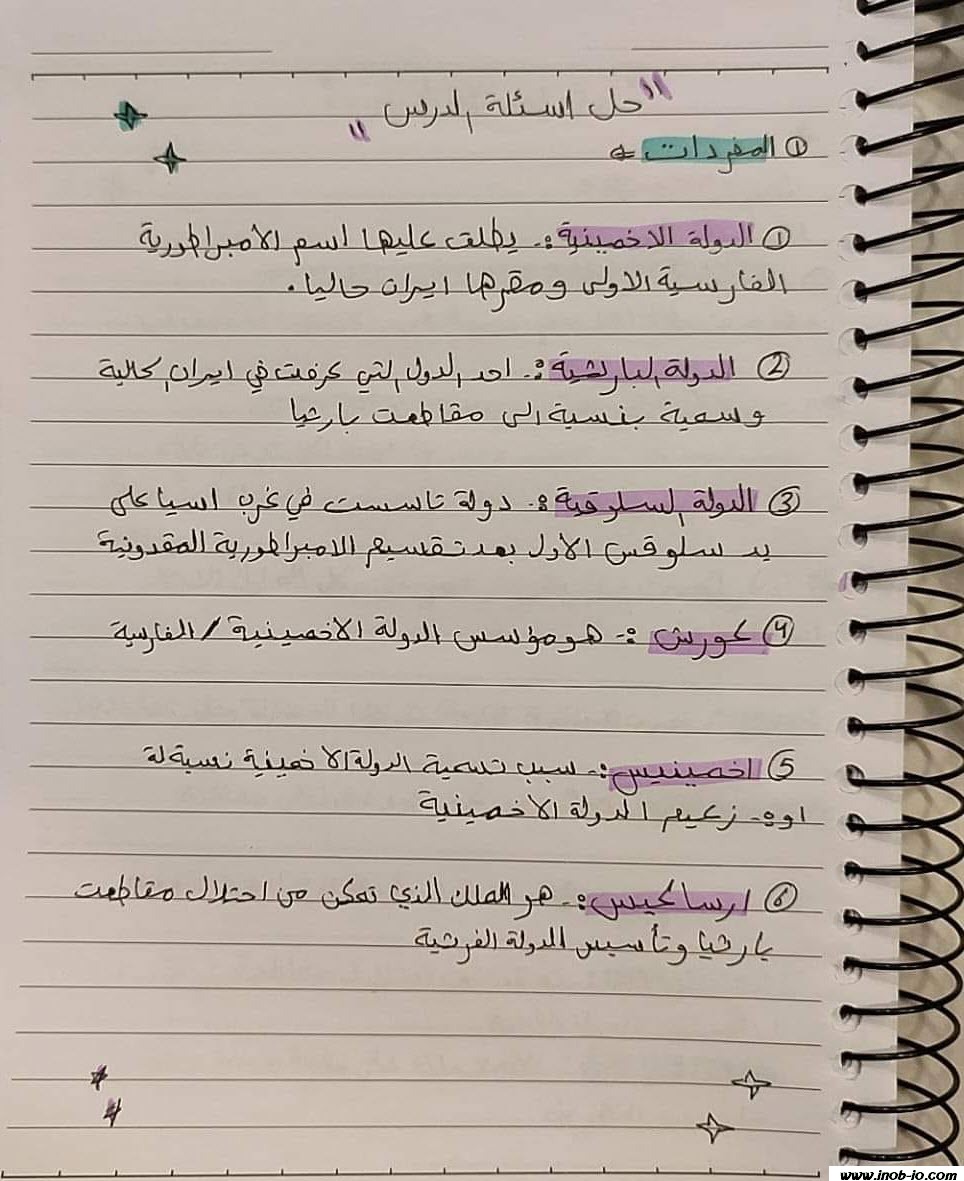 "حل اسئلة الدرس"
① المفردات =
① الدولة الاخمينية :- يطلق عليها اسم الامبراطورية
الفارسية الاولى ومقرها ايران حاليا .
② الدولة البارثية :- احد الدول التي عرفت في ايران الحالية
وسمية بنسبة الى مقاطعت بارثيا
③ الدولة السلوقية :- دولة تاسست في غرب اسيا على
يد سلوقس الاول بعد تقسيم الامبراطورية المقدونية
④ كورش :- هو مؤسس الدولة الاخمينية / الفارسية
⑤ اخمينيس :- سبب تسمية الدولة الاخمينية نسبة لة
او :- زعيم الدولة الاخمينية
⑥ ارساكيس :- هو الملك الذي تمكن من احتلال مقاطعت
بارثيا وتأسيس الدولة الفرثية
www.inob-io.com